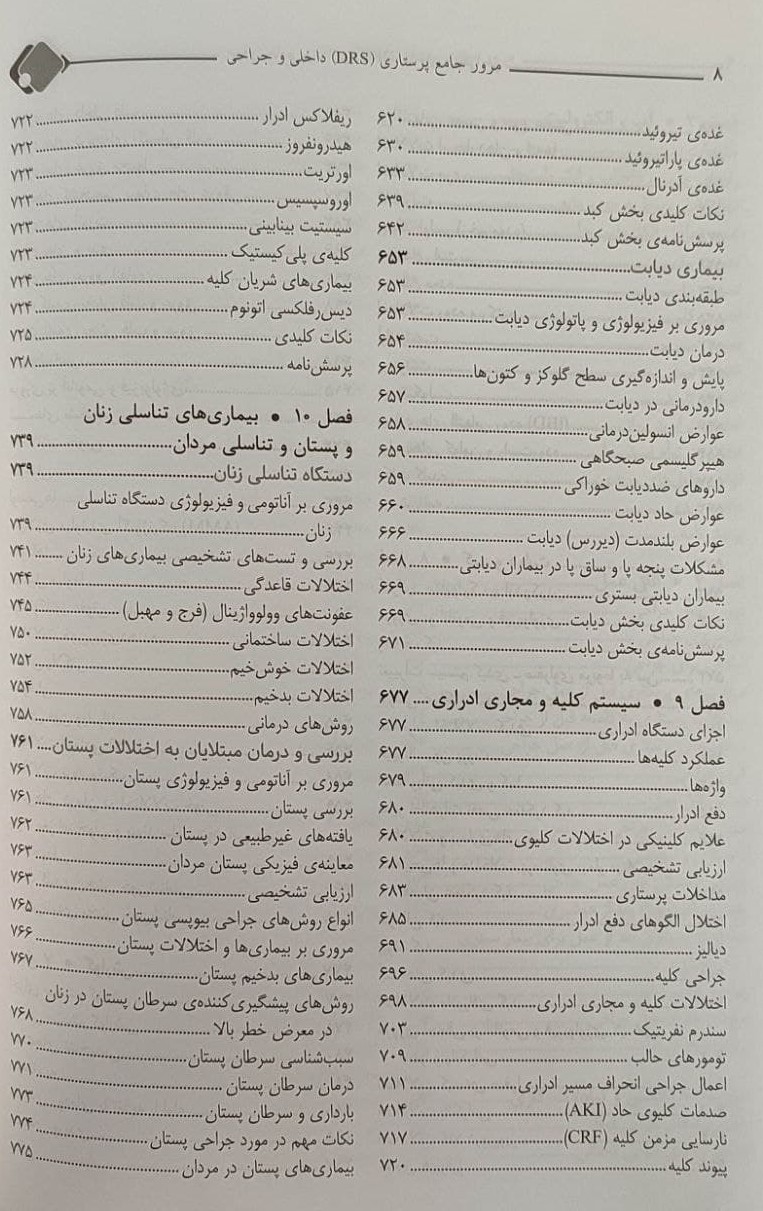 ۸ مرور جامع پرستاری (DRS) داخلی و جراحی
غده‌ی تیروئید ۶۲۰
غده‌ی پاراتیروئید ۶۳۰
غده‌ی آدرنال ۶۳۳
نکات کلیدی بخش کبد ۶۳۹
پرسش‌نامه‌ی بخش کبد ۶۴۲
بیماری دیابت ۶۵۳
طبقه‌بندی دیابت ۶۵۳
مروری بر فیزیولوژی و پاتولوژی دیابت ۶۵۳
درمان دیابت ۶۵۴
پایش و اندازه‌گیری سطح گلوکز و کتون‌ها ۶۵۶
دارودرمانی در دیابت ۶۵۷
عوارض انسولین‌درمانی ۶۵۸
هیپرگلیسمی صبحگاهی ۶۵۹
داروهای ضددیابت خوراکی ۶۵۹
عوارض حاد دیابت ۶۶۰
عوارض بلندمدت (دیررس) دیابت ۶۶۶
مشکلات پنجه پا و ساق پا در بیماران دیابتی ۶۶۸
بیماران دیابتی بستری ۶۶۹
نکات کلیدی بخش دیابت ۶۶۹
پرسش‌نامه‌ی بخش دیابت ۶۷۱
فصل ۹ • سیستم کلیه و مجاری ادراری ۶۷۷
اجزای دستگاه ادراری ۶۷۷
عملکرد کلیه‌ها ۶۷۷
واژه‌ها ۶۷۹
دفع ادرار ۶۸۰
علایم کلینیکی در اختلالات کلیوی ۶۸۰
ارزیابی تشخیصی ۶۸۱
مداخلات پرستاری ۶۸۳
اختلال الگوهای دفع ادرار ۶۸۵
دیالیز ۶۹۱
جراحی کلیه ۶۹۶
اختلالات کلیه و مجاری ادراری ۶۹۸
سندرم نفریتیک ۷۰۳
تومورهای حالب ۷۰۹
اعمال جراحی انحراف مسیر ادراری ۷۱۱
صدمات کلیوی حاد (AKI) ۷۱۴
نارسایی مزمن کلیه (CRF) ۷۱۷
پیوند کلیه ۷۲۰
ریفلاکس ادرار ۷۲۲
هیدرونفروز ۷۲۲
اورتریت ۷۲۳
اوروسپسیس ۷۲۳
سیستیت بینابینی ۷۲۳
کلیه‌ی پلی‌کیستیک ۷۲۳
بیماری‌های شریان کلیه ۷۲۴
دیس‌رفلکسی اتونوم ۷۲۴
نکات کلیدی ۷۲۵
پرسش‌نامه ۷۲۸
فصل ۱۰ • بیماری‌های تناسلی زنان
و پستان و تناسلی مردان ۷۳۹
دستگاه تناسلی زنان ۷۳۹
مروری بر آناتومی و فیزیولوژی دستگاه تناسلی
زنان ۷۳۹
بررسی و تست‌های تشخیصی بیماری‌های زنان ۷۴۱
اختلالات قاعدگی ۷۴۴
عفونت‌های وولوواژینال (فرج و مهبل) ۷۴۵
اختلالات ساختمانی ۷۵۰
اختلالات خوش‌خیم ۷۵۲
اختلالات بدخیم ۷۵۴
روش‌های درمانی ۷۵۸
بررسی و درمان مبتلایان به اختلالات پستان ۷۶۱
مروری بر آناتومی و فیزیولوژی پستان ۷۶۱
بررسی پستان ۷۶۱
یافته‌های غیرطبیعی در پستان ۷۶۲
معاینه‌ی فیزیکی پستان مردان ۷۶۳
ارزیابی تشخیصی ۷۶۳
انواع روش‌های جراحی بیوپسی پستان ۷۶۵
مروری بر بیماری‌ها و اختلالات پستان ۷۶۶
بیماری‌های بدخیم پستان ۷۶۷
روش‌های پیشگیری‌کننده‌ی سرطان پستان در زنان
در معرض خطر بالا ۷۶۸
سبب‌شناسی سرطان پستان ۷۷۰
درمان سرطان پستان ۷۷۱
بارداری و سرطان پستان ۷۷۳
نکات مهم در مورد جراحی پستان ۷۷۴
بیماری‌های پستان در مردان ۷۷۵